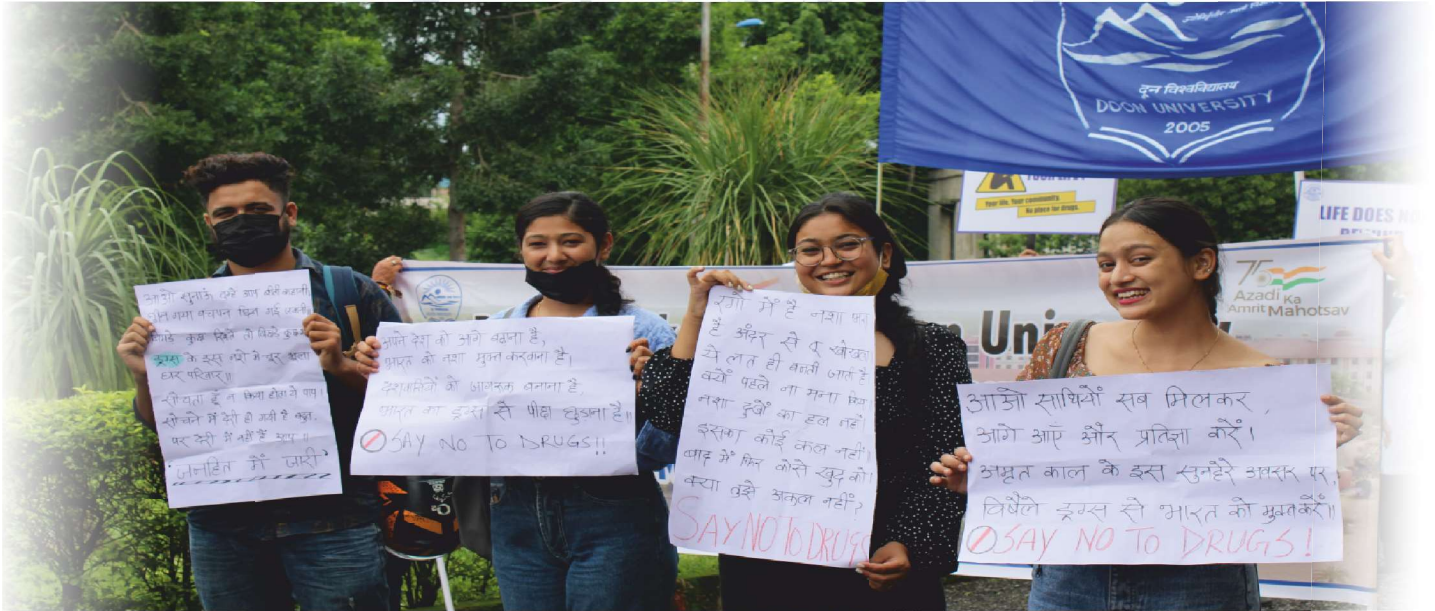 दून विश्वविद्यालय
DOON UNIVERSITY
2005
Your life. Your community.
No place for drugs.
LIFE DOES NO
75
Azadi Ka
Amrit Mahotsav
Un
आओ सुनाऊँ तुम्हे
ड्रग्स के इस नशे में चूर
सोचने में देरी हो गयी है कल,
पर देरी में नहीं है
'जनहित में जारी'
अपने देश को आगे बढ़ाना है,
भारत को नशा मुक्त करवाना है।
देशवासियों को जागरूक बनाना है,
भारत का ड्रग्स से पीछा छुड़ाना है॥
SAY NO TO DRUGS!!
रगों में है नशा
है अंदर से तू खोखला
ये लत ही बढ़ती जाती है
क्यों पहले ना मना किया
नशा दुखों का हल नहीं।
इसका कोई कल नहीं।
बाद में फिर कोसे खुद को।
क्या तुझे अकल नहीं?
SAY NO TO DRUGS
आओ साथियों सब मिलकर,
आगे आएँ और प्रतिज्ञा करें।
अमृत काल के इस सुनहरे अवसर पर,
विषैले ड्रग्स से भारत को मुक्त करें॥
SAY NO TO DRUGS!